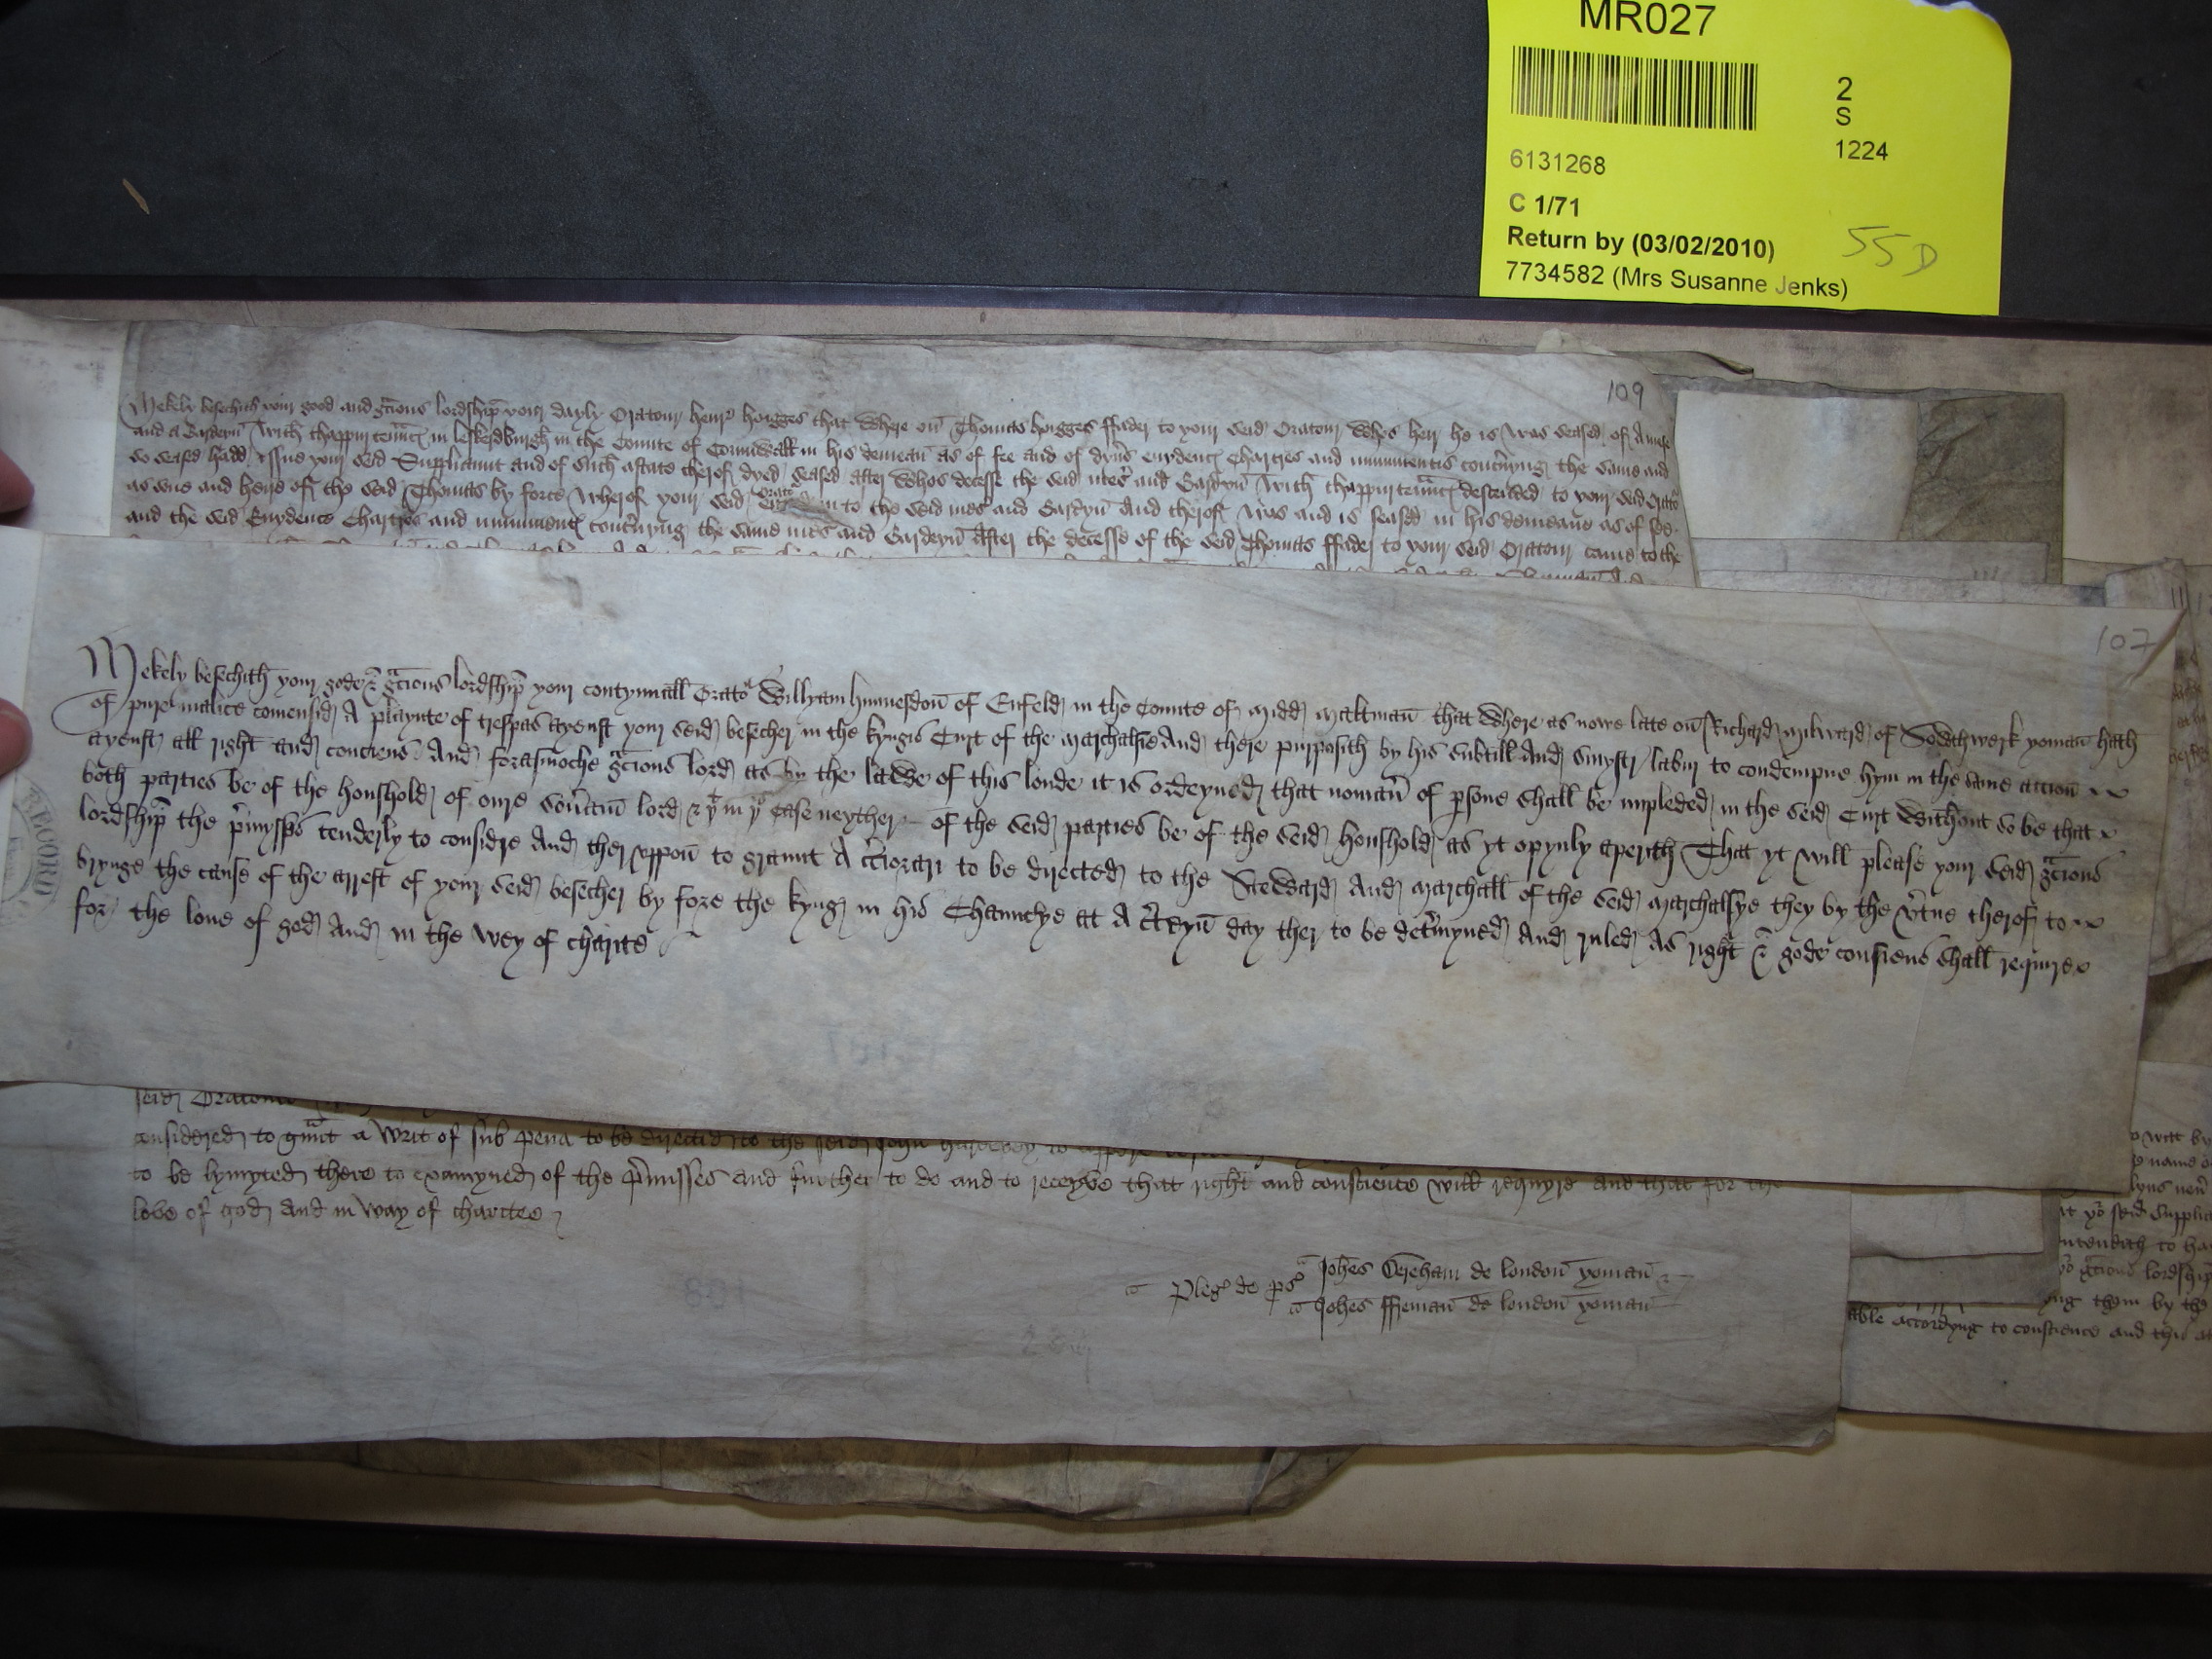 MR027
2
S
1224
6131268
C 1/71
Return by (03/02/2010)
55D
7734582 (Mrs Susanne Jenks)
109
Mekely besechith your good and gracions lordship your dayly Oratour henr hogges that Where on Thomas hogges ffader to your seid Oratour Whos heir he is Was seased of A mese
and a Gardeyn With thappurtenances in leskerdburgh in the Comite of Cornwall in his demean as of fee and of dyvers evydence Chartres and munimentis concernyng the same and
so seased hadd issue your seid Suppliaunt and of such astate therof dyed seased After Whos decesse the seid mese and Gardyn With thappurtenances descended to your seid Oratour
as sone and heire of the seid Thomas by force Wherof your seid Oratour to the seid mes and Gardyn And therof Was and is seased in his demeane as of fee
and the seid Evydence Chartres and munimentes concernyng the same mes and Gardeyn After the decesse of the seid Thomas ffader to your seid Oratour came to the
107
Mekely besechith your gode & gracious lordship your contynuall Orator Willyam hunnesdon of Enfeld in the Counte of Midd Maltman that Where as nowe late on Richard Milward of Sowthwerk yoman hath
of pure malice comensid A playnte of trespas ayenst your seid besecher in the kyngis Curt of the Marchalsie And there purpasith by his subtill And synystr labur to condempne hym in the same accion
ayenst all right and conciens And forasmoche gracious lord as by the lawe of this londe it is ordeyned that noman of persone shall be impleded in the seid Curt Without so be that
both parties be of the houshold of oure soveran lord & yt in ys case neyther of the seid parties be of the seid houshold as yt opynly aperith That yt will please your seid gracious
lordship the premysses tenderly to considre And ther uppon to graunt A certiorari to be directed to the Steward And Marchall of the seid Marchalsye they by the vertue therof to
brynge the cause of the arrest of your seid besecher by fore the kyng in his Chauncye at A certeyn day ther to be determyned And ruled As right & gode consiens shall require
for the love of god And in the wey of charite
seid Oratour
considered to graunt a Writ of sub pena to be directid to the seid John
to be lymyted there to examyned of the premisses and further to do and to receyve that right and conscience will requyre and that for the
love of god And in Way of charitee
Pleg de ps Johes Dereham de london yoman
Johes ffreman de london yoman
able accordyng to conscience and this at